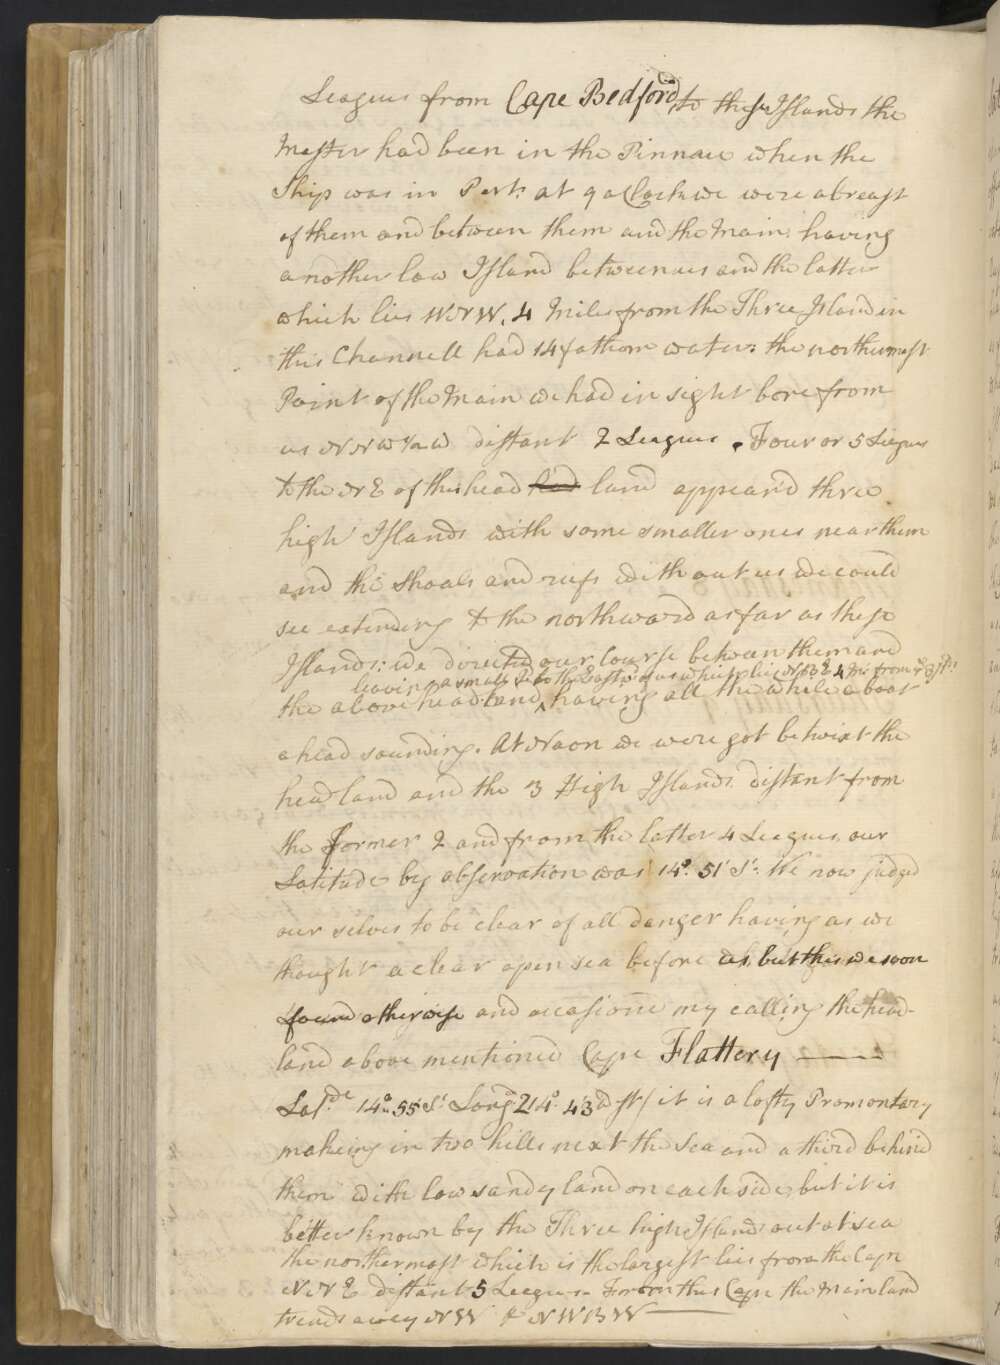 Leagues from Cape Bedford, to these Islands the
Master had been in the Pinnace when the
Ship was in Port. at 9 oClock we were abreast
of them and between them and the Main having
another low Island between us and the latter
which lies WNW, 4 Miles from the Three Island in
this Channell had 14 fathom water: the northermost
Point of the Main we had in sight bore from
us NNW ½ W distant 2 Leagues. Four or 5 Leagues
to the NE of this head had land appear'd three
high Islands with some smaller ones near them
and the Shoals and reefs without us we could
see extending to the northward as far as these
Islands: we directed our Course between them and
leaving a small Isd. to the Eastwd. of us which lies NBE 4 Ms. from ye. 3 Isds.
the above headland, having all the while a boat
ahead sounding. At Noon we were got betwixt the
head land and the 3 High Islands distant from
the former 2 and from the latter 4 Leagues, our
Latitude by observation was 14°. 51' S°: We now judged
our selves to be clear of all danger having as we
thought a clear open sea before us, but this we soon
found otherwise and occasioned my calling the head-
land above mentioned Cape Flattery
Latde. 14°.. 55' S°. Longd. 214°. 43' West/ it is a lofty Promontary
makeing in two hills next the Sea and a third behind
them with low sandy land on each side, but it is
better known by the Three high Islands out at sea
the northermost which is the largest lies from the Cape
NNE distant 5 Leagues From this Cape the Main land
trends away NW & NWBW